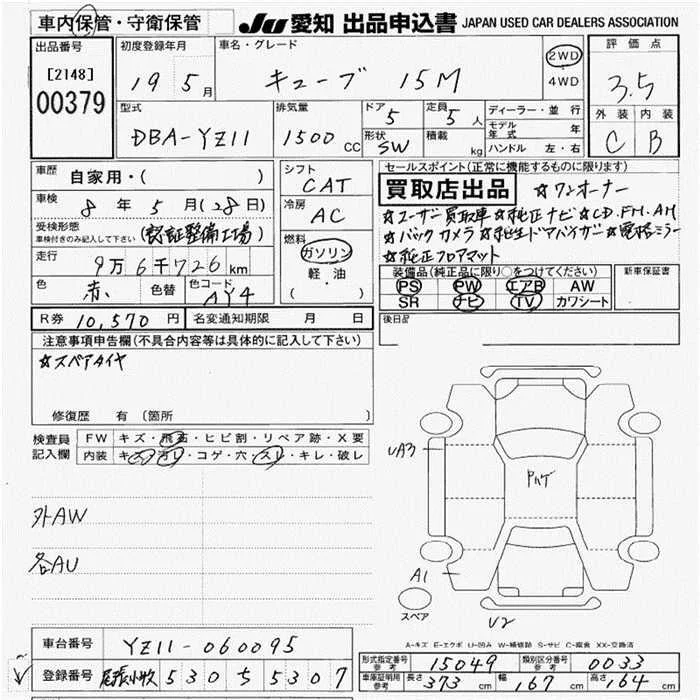 車内保管・守衛保管 JU 愛知 出品申込書 JAPAN USED CAR DEALERS ASSOCIATION
出品番号 初度登録年月 車名・グレード 評価点
[2148] 19 5月 キューブ 15M 2WD 3.5
00379 4WD
型式 排気量 ドア 5 定員 5人 ディーラー・並行 外装 内装
DBA-YZ11 1500cc 形状 SW 積載 kg モデル年式 年 C B
ハンドル 左・右
車歴 自家用・( ) シフト CAT セールスポイント(正常に機能するものに限ります)
車検 8年5月(28日) 冷房 AC 買取店出品 ☆ワンオーナー
受検形態 車検付きのみ記入して下さい (認証整備工場) ☆ユーザー買取車☆純正ナビ☆CD.FM.AM
走行 9万6千726km 燃料 ガソリン ☆バックカメラ☆純正ドアバイザー☆電格ミラー
軽・油 ☆純正フロアマット
色 赤 色替 色コード AY4 ( ) 装備品(純正品に限り○をつけてください) 新車保証書
PS PW エアB AW
SR ナビ TV カワシート
R券 10,570円 名変通知期限 月 日 後日品
注意事項申告欄(不具合内容等は具体的に記入して下さい)
☆スペアタイヤ
修復歴 有(箇所 )
検査員記入欄 FW キズ・飛石・ヒビ割・リペア跡・X要
内装 キズ・汚レ・コゲ・穴・スレ・キレ・破レ
UA3
外AW
各AU
A1
スペア
U2
A-キズ E-エクボ U-凹み W-補修跡 S-サビ C-腐食 XX-交換済
車台番号 YZ11-060095 形式指定番号 参考 15049 類別区分番号 参考 0033
登録番号 尾張小牧 530 5307 車庫証明用 参考 長さ 373cm 幅 167cm 高さ 164cm